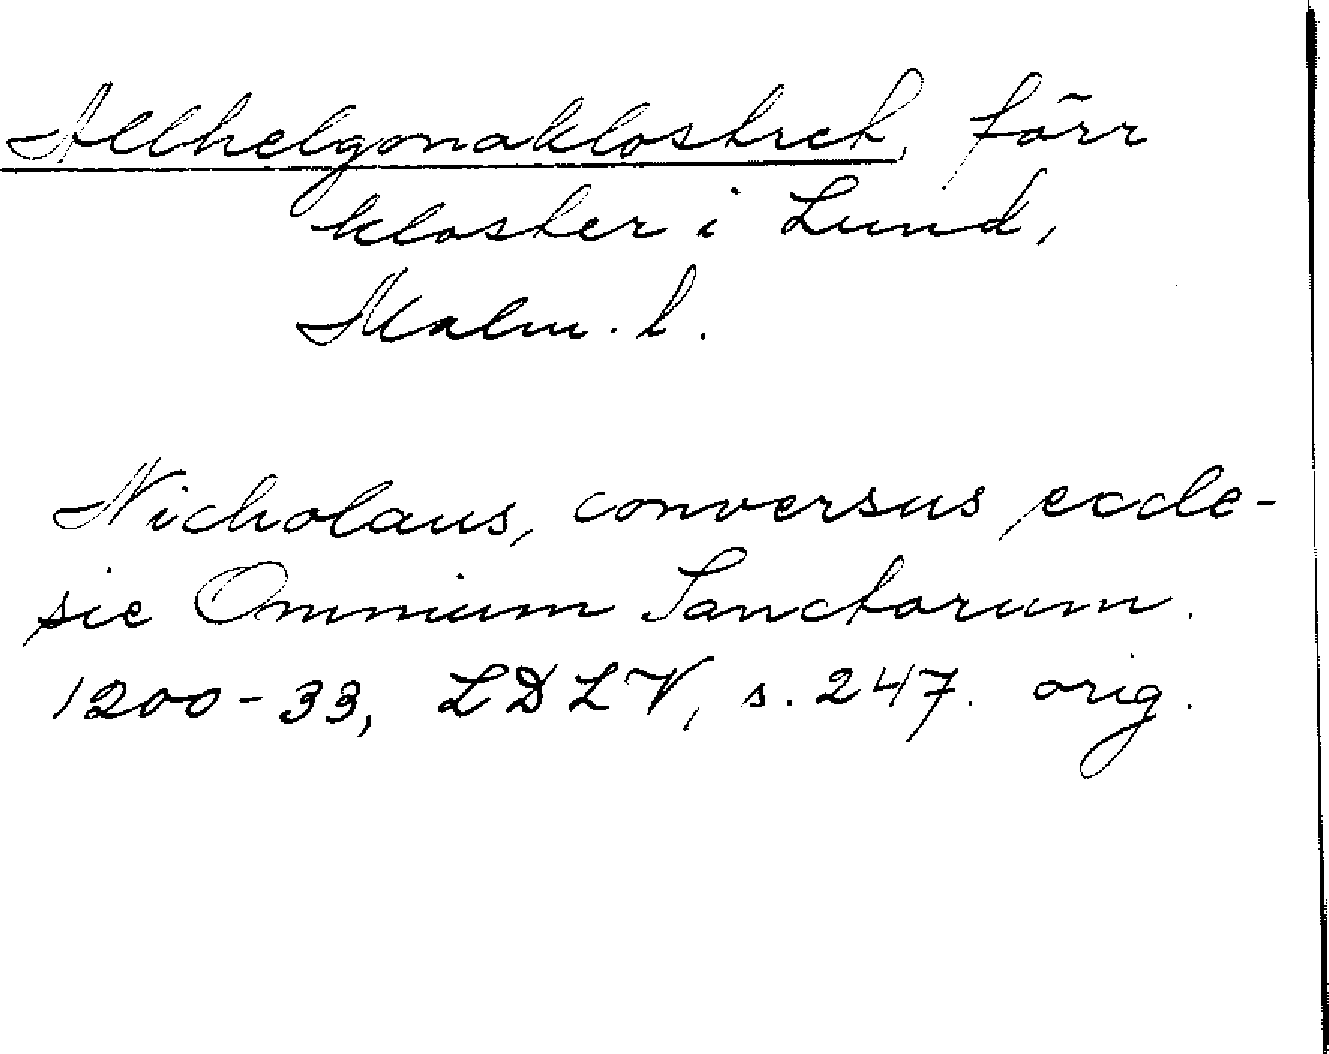 Allhelgonaklostret, förr
kloster i Lund,
Malm. l.
Nicholaus, conversus eccle-
sie Omnium Sanctorum.
1200-33, LDLV, s. 247. orig.